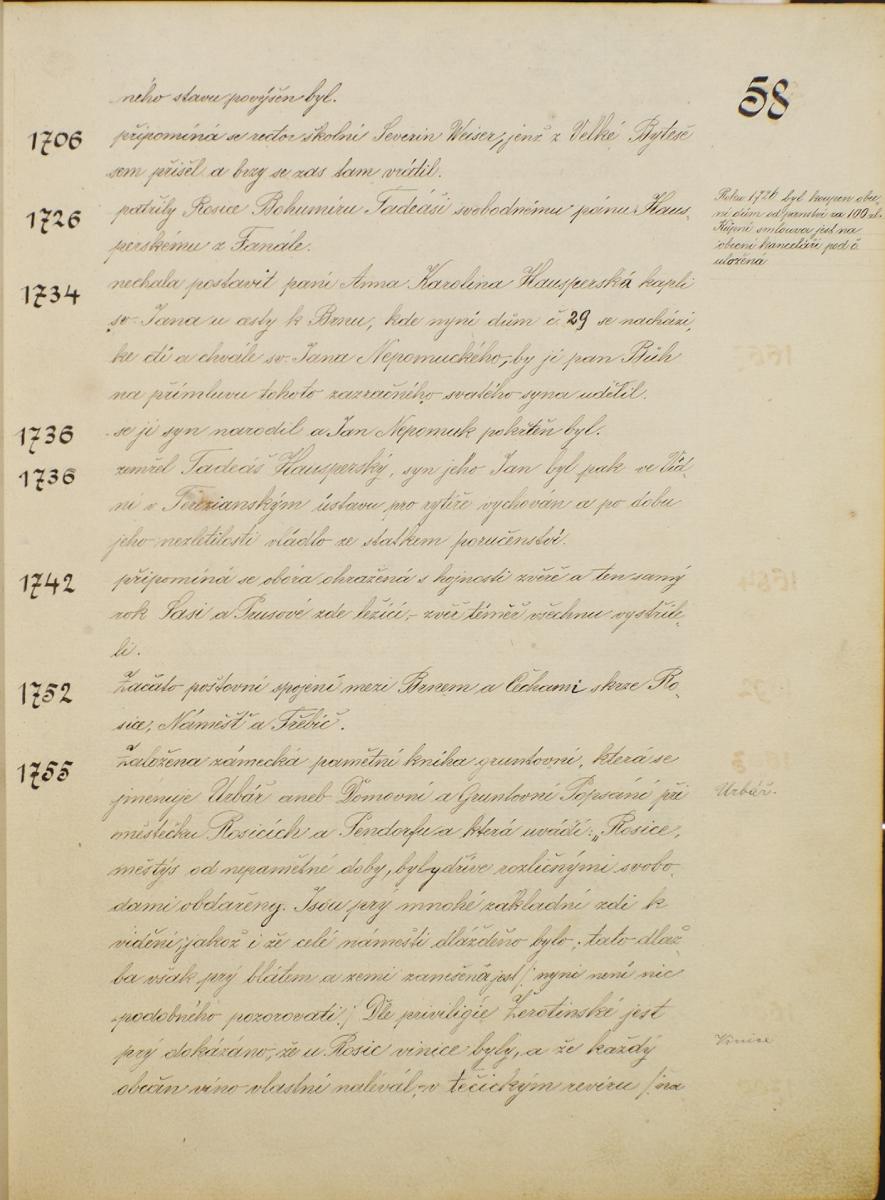 58
ného stavu povýšen byl.
1706 připomíná se rector školní Severin Weiser, jenž z Velké Byteše
sem přišel a brzy se zas tam vrátil.
1726 patřily Rosice Bohumíru Tadeáši svobodnému pánu Haus-
perskému z Fanále.
Roku 1726 byl koupen obec-
ní dům od panství za 100 zl.
Kupní smlouva jest na
obecní kanceláři pod č.
uložená
1734 nechala postavit paní Anna Karolina Hausperská kapli
sv. Jana u cesty k Brnu, kde nyní dům č. 29 se nachází,
ke cti a chvále sv. Jana Nepomuckého, by jí pan Bůh
na přímluvu tohoto zazračného svatého syna udělil.
1736 se jí syn narodil a Jan Nepomuk pokřtěn byl.
1736 zemřel Tadeáš Hausperský, syn jeho Jan byl pak ve Víd-
ni v Terezianským ústavu pro rytíře vychován a po dobu
jeho nezletilosti vládlo ze statkem poručenství.
1742 připomíná se obora ohražená s hojností zvěře a ten samý
rok Sasi a Prusové zde ležící, zvěř téměř všechnu vystříle-
li.
1752 Začato poštovní spojení mezi Brnem a Čechami skrze Ro-
sice, Náměšť a Třebíč.
1755 Založena zámecká pamětní kniha gruntovní, která se
jmenuje Urbář aneb Domovní a Gruntovní Popsání při
Urbář.
městečku Rosicích a Pendorfu a která uvádí: „Rosice,
městys od nepamětné doby, byly dříve rozličnými svobo-
dami obdařeny. Jsou prý mnohé základní zdi k
vidění, jakož i že celé náměstí dlážděno bylo, tato dlaž-
ba však prý blátem a zemí zanešená jest /: nyní není nic
podobného pozorovati :/ Dle priviligie Žerotinské jest
prý dokázáno, že u Rosic vinice byly, a že každý
Vinice
občan víno vlastní nalévál, v tečickým revíru /: na